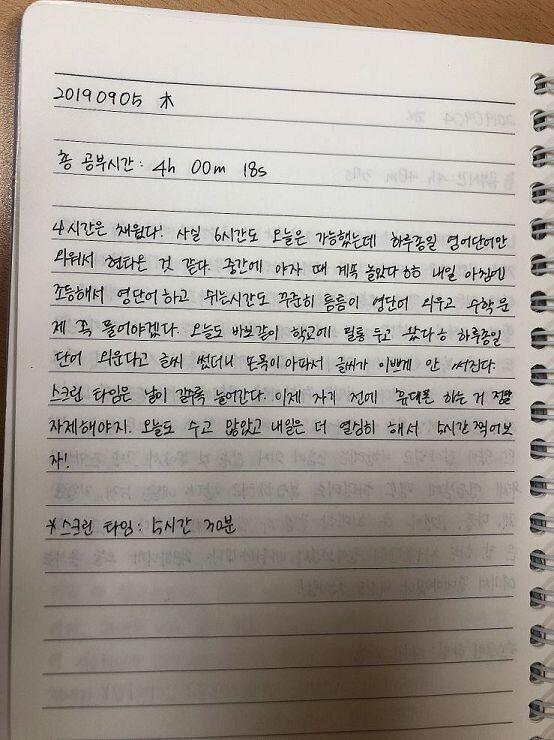 20190905 木
총 공부시간: 4h 00m 18s
4시간은 채웠다! 사실 6시간도 오늘은 가능했는데 하루종일 영어단어만
외워서 현타온 것 같다. 중간에 야자 때 계속 놀았다ㅎㅎ 내일 아침에
조등해서 영단어 하고 쉬는시간도 꾸준히 틈틈이 영단어 외우고 수학 문
제 꼭 풀어야겠다. 오늘도 바보같이 학교에 필통 두고 왔다ㅎ 하루종일
단어 외운다고 글씨 썼더니 손목이 아파서 글씨가 이쁘게 안 써진다.
스크린 타임은 날이 갈수록 늘어간다. 이제 자기 전에 휴대폰 하는 거 정말
자제해야지. 오늘도 수고 많았고 내일은 더 열심히 해서 5시간 찍어보
자!
*스크린 타임: 5시간 30분